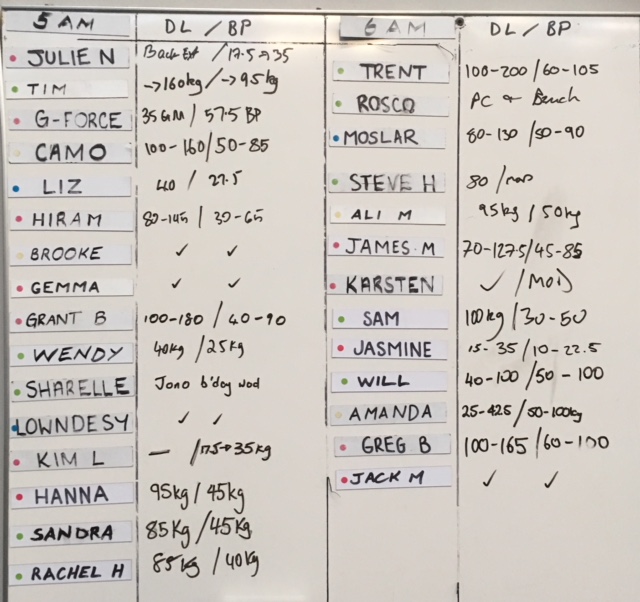 5 AM DL / BP
JULIE N Back Ext / 17.5→35
TIM →160kg / →95kg
G-FORCE 35 GM / 57.5 BP
CAMO 100-160/50-85
LIZ 40 / 27.5
HIRAM 80-145 / 30-65
BROOKE ✓ ✓
GEMMA ✓ ✓
GRANT B 100-180 / 40-90
WENDY 40kg / 25kg
SHARELLE Jono b'day wod
LOWNDESY ✓ ✓
KIM L — /17.5→35kg
HANNA 95kg / 45kg
SANDRA 85kg / 45kg
RACHEL H 85kg / 40kg
6 AM DL / BP
TRENT 100-200 / 60-105
ROSCO PC + Bench
MOSLAR 80-130 / 50-90
STEVE H 80 /
ALI M 95kg / 50kg
JAMES M 70-127.5/45-85
KARSTEN ✓ / MOD
SAM 100kg / 30-50
JASMINE 15-35 / 10-22.5
WILL 40-100 / 50-100
AMANDA 25-425 / 50-100kg
GREG B 100-165 / 60-100
JACK M ✓ ✓